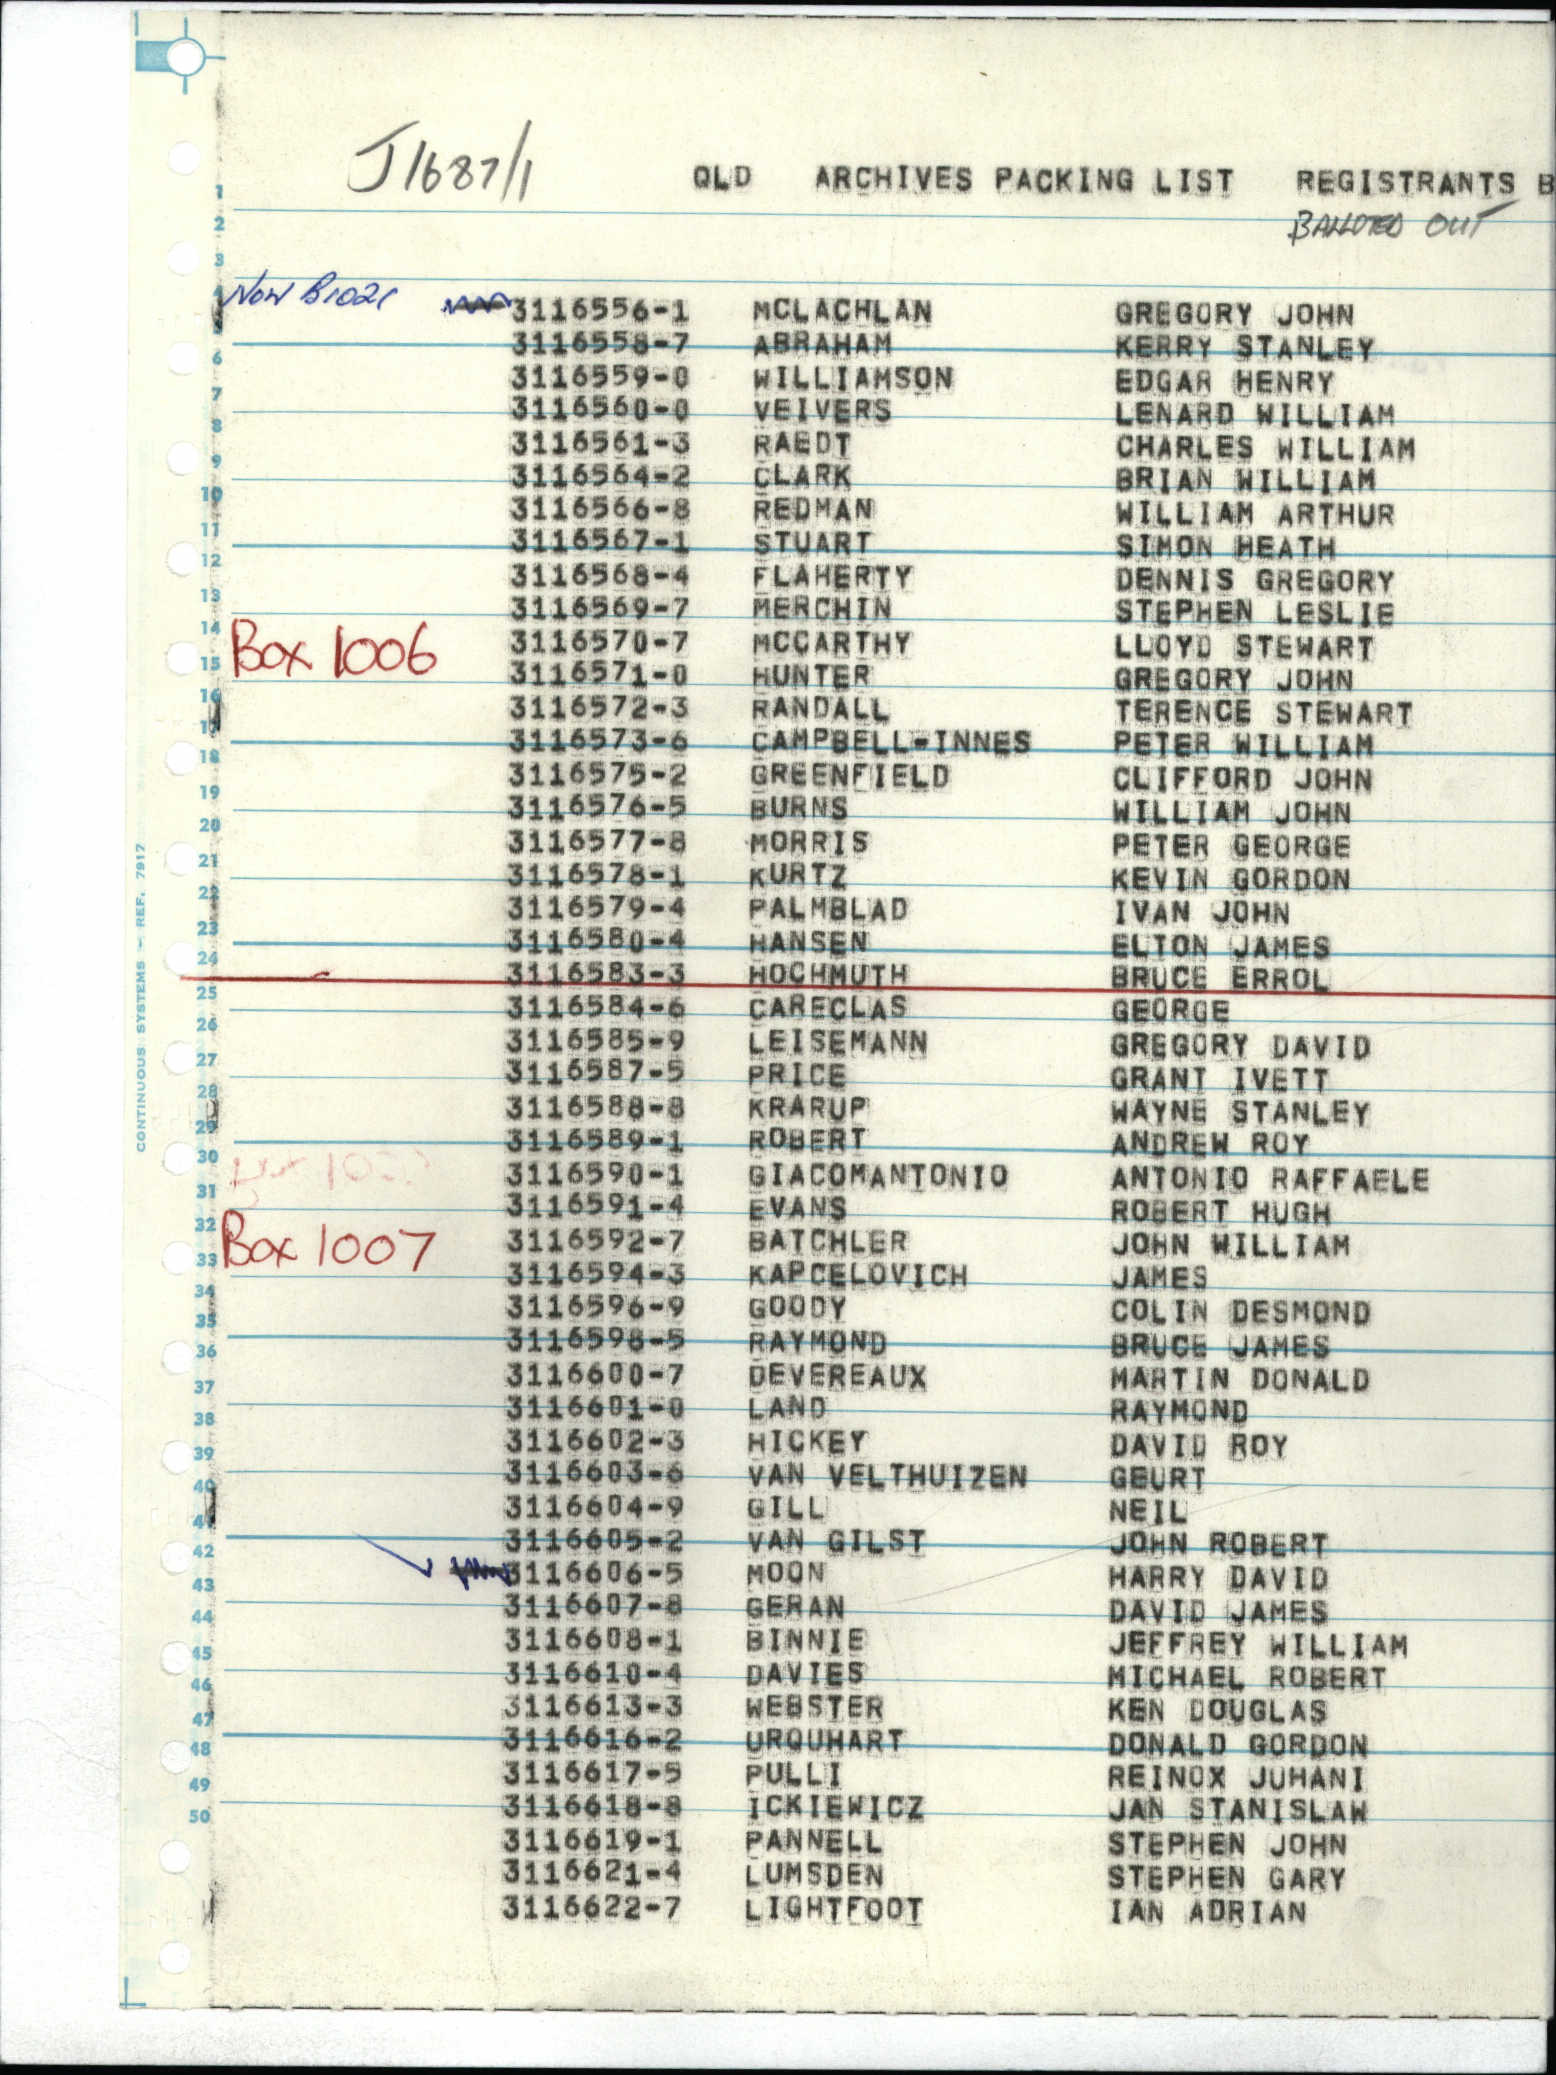 J1687/1 QLD ARCHIVES PACKING LIST REGISTRANTS B
BALLOTED OUT
Now B1021 3116556-1 MCLACHLAN GREGORY JOHN
3116558-7 ABRAHAM KERRY STANLEY
3116559-0 WILLIAMSON EDGAR HENRY
3116560-0 VEIVERS LENARD WILLIAM
3116561-3 RAEDT CHARLES WILLIAM
3116564-2 CLARK BRIAN WILLIAM
3116566-8 REDMAN WILLIAM ARTHUR
3116567-1 STUART SIMON HEATH
3116568-4 FLAHERTY DENNIS GREGORY
3116569-7 MERCHIN STEPHEN LESLIE
Box 1006 3116570-7 MCCARTHY LLOYD STEWART
3116571-0 HUNTER GREGORY JOHN
3116572-3 RANDALL TERENCE STEWART
3116573-6 CAMPBELL-INNES PETER WILLIAM
3116575-2 GREENFIELD CLIFFORD JOHN
3116576-5 BURNS WILLIAM JOHN
3116577-8 MORRIS PETER GEORGE
3116578-1 KURTZ KEVIN GORDON
3116579-4 PALMBLAD IVAN JOHN
3116580-4 HANSEN ELTON JAMES
3116583-3 HOCHMUTH BRUCE ERROL
3116584-6 CARECLAS GEORGE
3116585-9 LEISEMANN GREGORY DAVID
3116587-5 PRICE GRANT IVETT
3116588-8 KRARUP WAYNE STANLEY
3116589-1 ROBERT ANDREW ROY
3116590-1 GIACOMANTONIO ANTONIO RAFFAELE
3116591-4 EVANS ROBERT HUGH
Box 1007 3116592-7 BATCHLER JOHN WILLIAM
3116594-3 KAPCELOVICH JAMES
3116596-9 GOODY COLIN DESMOND
3116598-5 RAYMOND BRUCE JAMES
3116600-7 DEVEREAUX MARTIN DONALD
3116601-0 LAND RAYMOND
3116602-3 HICKEY DAVID ROY
3116603-6 VAN VELTHUIZEN GEURT
3116604-9 GILL NEIL
3116605-2 VAN GILST JOHN ROBERT
3116606-5 MOON HARRY DAVID
3116607-8 GERAN DAVID JAMES
3116608-1 BINNIE JEFFREY WILLIAM
3116610-4 DAVIES MICHAEL ROBERT
3116613-3 WEBSTER KEN DOUGLAS
3116616-2 URQUHART DONALD GORDON
3116617-5 PULLI REINOX JUHANI
3116618-8 ICKIEWICZ JAN STANISLAW
3116619-1 PANNELL STEPHEN JOHN
3116621-4 LUMSDEN STEPHEN GARY
3116622-7 LIGHTFOOT IAN ADRIAN
1
2
3
4
5
6
7
8
9
10
11
12
13
14
15
16
17
18
19
20
21
22
23
24
25
26
27
28
29
30
31
32
33
34
35
36
37
38
39
40
41
42
43
44
45
46
47
48
49
50
CONTINUOUS SYSTEMS - REF. 7917